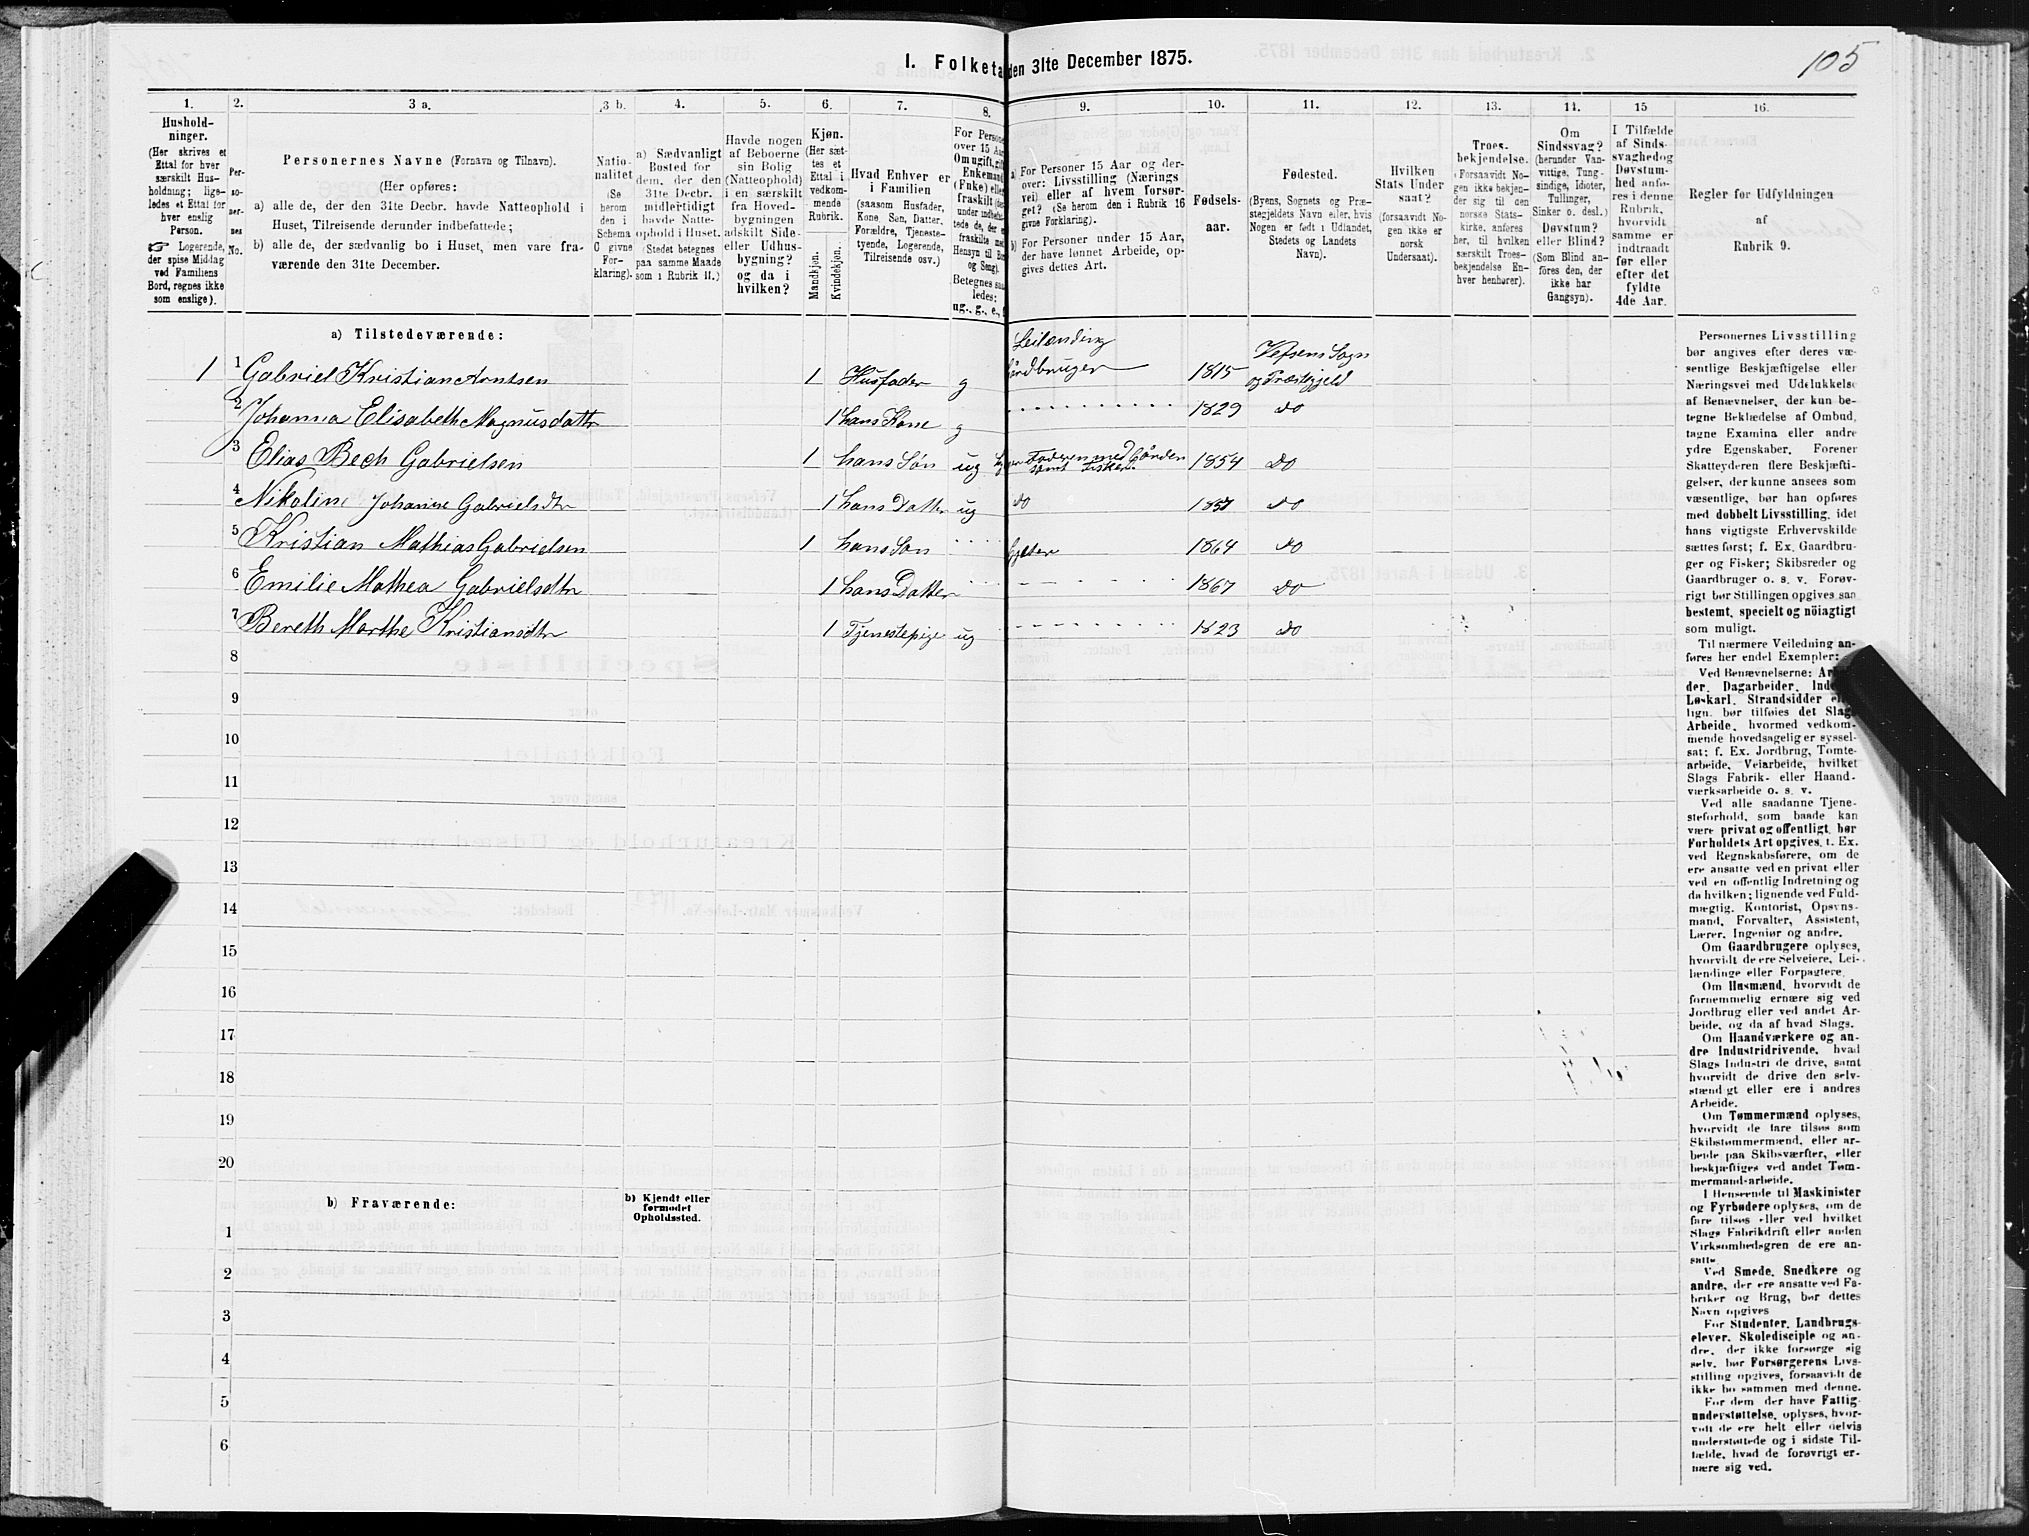 105
1. Folketa den 31te December 1875.
1. 2. 3 a. 3 b. 4. 5. 6. 7. 8. 9. 10. 11. 12. 13. 14. 15 16.
Husholdninger.
(Her skrives et
Ettal for hver
særskilt Husholdning; ligeledes et Ettal for
hver enslig
Person.
☞ Logerende,
der spise Middag
ved Familiens
Bord, regnes ikke
som enslige).
Personernes No.
Personernes Navne (Fornavn og Tilnavn).
(Her opføres:
a) alle de, der den 31te Decbr. havde Natteophold i
Huset, Tilreisende derunder indbefattede;
b) alle de, der sædvanlig bo i Huset, men vare fraværende den 31te December.
Nationalitet
(Se
herom
den i
Schema
C givne
Forklaring).
a) Sædvanligt
Bosted for
dem, der den
31te Decbr.
midlertidigt
havde Natteophold i Huset.
(Stedet betegnes
paa samme Maade
som i Rubrik 11.)
Havde nogen
af Beboerne
sin Bolig
(Natteophold)
i en særskilt
fra Hovedbygningen
adskilt Side-
eller Udhusbygning?
og da i
hvilken?
Kjøn.
(Her sættes et
Ettal i
vedkommende
Rubrik.
Mandkjøn.
Kvindekjøn.
Hvad Enhver er
i Familien
(saasom Husfader,
Kone, Søn, Datter,
Forældre, Tjenestetyende, Logerende,
Tilreisende osv.)
For Persone
over 15 Aar
Om ugift, gift
Enkemand
(Enke) eller
fraskilt
Betegnes saaledes:
ug., g., e., f
a) For Personer 15 Aar og derover: Livsstilling (Næringsvei) eller af hvem forsørget? (Se herom den i Rubrik 16
givne Forklaring.)
b) For Personer under 15 Aar,
der have lønnet Arbeide, opgives dettes Art.
Fødselsaar.
Fødested.
(Byens, Sognets og Præstegjeldets Navn eller, hvis
Nogen er født i Udlandet,
Stedets og Landets
Navn).
Hvilken
Stats Undersaat?
(forsaavidt Nogen ikke er
norsk
Undersaat).
Troesbekjendelse.
(Forsaavidt Nogen ikke bekjender sig til den
norske Statskirke, anføres
her, til hvilken
særskilt Troesbekjendelse Enhver henhører).
Om
Sindssvag?
(herunder Vanvittige, Tungsindige, Idioter,
Tullinger,
Sinker o. desl.)
Døvstum?
eller Blind?
(Som Blind anføres den, der
ikke har
Gangsyn).
I Tilfælde
af Sindssvaghed og
Døvstumhed anføres i denne
Rubrik,
hvorvidt
samme er
indtraadt
før eller
efter det
fyldte
4de Aar.
Regler før Udfyldningen
af
Rubrik 9.
a) Tilstedeværende:
1 1 Gabriel Kristian Arntsen 1 Husfader g Leilænding Gårdbruger 1815 Vefsens Sogn og Præstegjeld
2 Johanna Elisabeth Magnusdattr 1 hans Kone g 1829 do
3 Elias Bech Gabrielsen 1 hans Søn ug Faderen med Gården samt fisker 1854 do
4 Nikoline Johanne Gabrielsdtr 1 hans Datter ug do do
5 Kristian Mathias Gabrielsen 1 hans Søn Gjeter 1864 do
6 Emilie Mathea Gabrielsdtr 1 hans Datter 1867 do
7 Bereth Marthe Kristiansdtr 1 Tjenestepige ug 1823 do
8
9
10
11
12
13
14
15
16
17
18
19
20
b) Fraværende:
b) Kjendt eller
formodet
Opholdssted.
1
2
3
4
5
6
Personernes Livsstilling
bør angives efter deres væsentlige Beskjæftigelse eller
Næringsvei med Udelukkelse
af Benævnelser, der kun betegne Beklædelse af Ombud,
tagne Examina eller andre
ydre Egenskaber. Forener
Skatteyderen flere Beskjæftigelser, der kunne ansees som
væsentlige, bør han opføres
med dobbelt Livsstilling, idet
hans vigtigste Erhvervskilde
sættes først; f. Ex. Gaardbruger og Fisker; Skibsreder og
Gaardbruger o. s. v. Forøvrigt bør Stillingen opgives saa
bestemt, specielt og nøiagtigt
som muligt.
Til nærmere Veiledning anføres her endel Exempler:
Ved Benævnelserne:
der, Dagarbeider,
Løskarl, Strandsidder
lign. bør tilføies det Slags
Arbeide, hvormed vedkommende hovedsagelig er sysselsat; f. Ex. Jordbrug, Tomtearbeide, Veiarbeide, hvilket
Slags Fabrik- eller Haandværksarbeide o. s. v.
Ved alle saadanne Tjenesteforhold, som baade kan
være privat og offentligt, bør
Forholdets Art opgives, f. Ex.
ved Regnskabsførere, om de
ere ansatte ved en privat eller
ved en offentlig Indretning og
da hvilken; lignende ved Fuldmægtig, Kontorist, Opsynsmand, Forvalter, Assistent,
Lærer, Ingeniør og andre.
Om Gaardbrugere oplyses,
hvorvidt de ere Selveiere, Leilændinge eller Forpagtere.
Om Husmænd, hvorvidt de
fornemmelig ernære sig ved
Jordbrug eller ved andet Arbeide, og da af hvad Slags.
Om Haandværkere og andre Industridrivende, hvad
Slags Industri de drive, samt
hvorvidt de drive den selvstændigt eller ere i andres
Arbeide.
Om Tømmermænd oplyses,
hvorvidt de fare tilsøs som
Skibstømmermænd, eller arbeide paa Skibsværfter, eller
beskjæftiges ved andet Tømmermand-arbeide.
I Henseende til Maskinister
og Fyrbødere oplyses, om de
fare tilsøs eller ved hvilket
Slags Fabrikdrift eller anden
Virksomhedsgren de ere ansatte.
Ved Smede, Snedkere og
andre, der ere ansatte ved Fabriker og Brug, bør dettes
Navn opgives
For Studenter, Landbrugselever, Skoledisciple og andre, der ikke forsørge sig
selv, bør Forsørgerens Livsstilling opgives, forsaavidt de
ikke bo sammen med denne.
For dem, der have Fattigunderstøttelse, oplyses, hvorvidt de ere helt eller delvis
understøttede og i sidste Tilfælde, hvad de forøvrigt ernære sig ved.